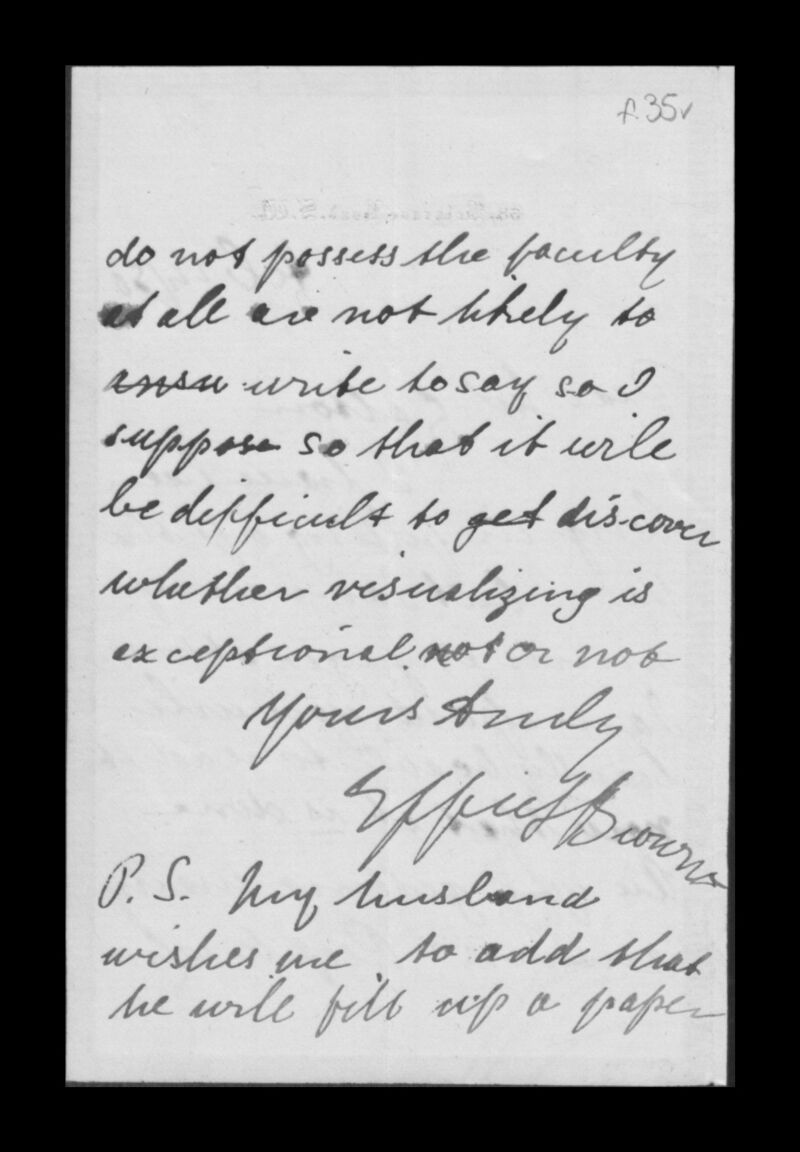 f.35v
do not possess the faculty
at all are not likely to
answ write to say so I
suppose so that it will
be difficult to get discover
whether visualizing is
exceptional not or not
Yours truly
Effie Browne
P.S. My husband
wishes me to add that
he will fill up a paper